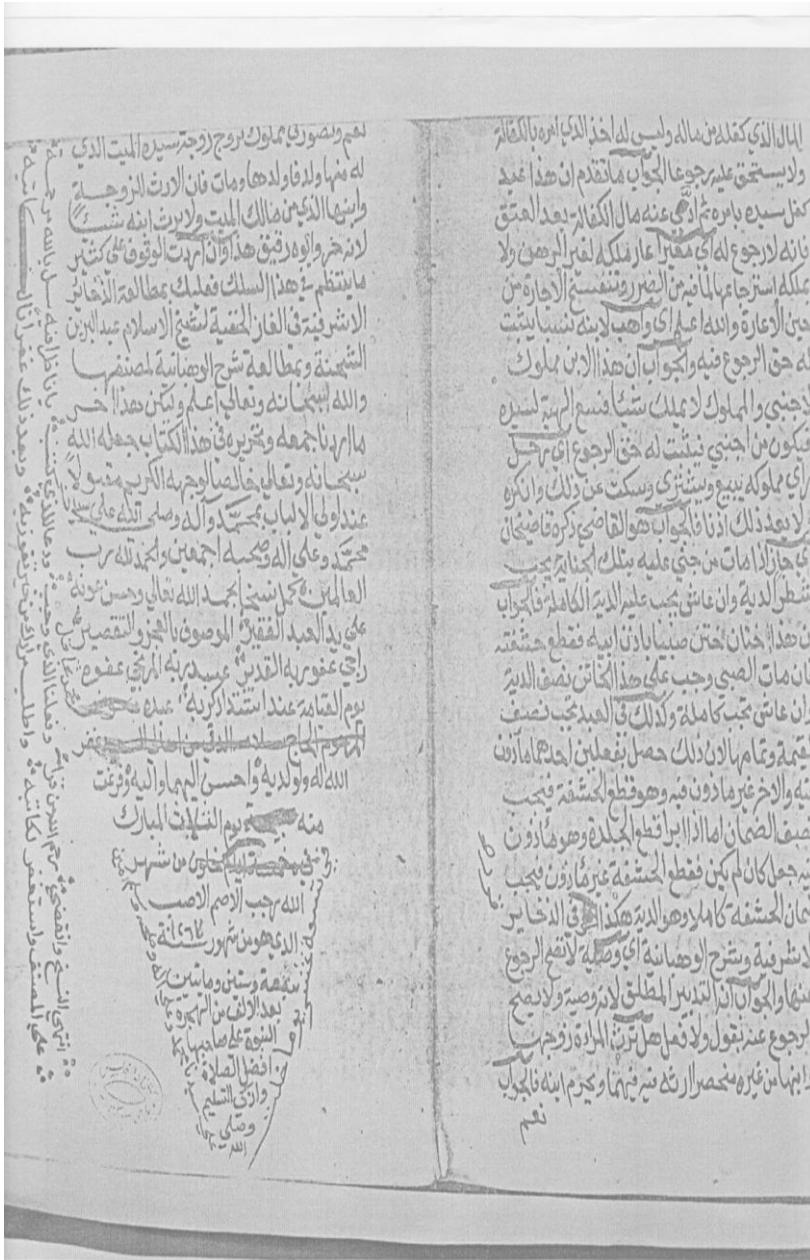 المال الذي كفله من ماله وليس له اخذ الذي امره بالكفالة
ولا يستحق عليه رجوعا الجواب ما تقدم ان هذا عبد
كفل سيده بامره ثم ادى عنه مال الكفالة بعد العتق
فانه لا رجوع له اي معيرا اعار ملكه لغير الرهن ولا
يملك استرجاعها لما فيه من الضرر وتنفسخ الاجارة من
حين الاعارة والله اعلم اي واهب لابنه شيئا يثبت
له حق الرجوع فيه والجواب ان هذا الابن مملوك
لاجنبي والمملوك لا يملك شيئا فتقع الهبة لسيده
فيكون من اجنبي فيثبت له حق الرجوع اي رجل
راي مملوكه يبيع ويشتري وسكت عن ذلك وانكره
لا يعد ذلك اذنا فالجواب هو القاضي ذكره قاضيخان
اي جان اذا مات من جنى عليه بتلك الجناية يجب
شطر الدية وان عاش يجب عليه الدية الكاملة فالجواب
ان هذا ختان ختن صبيا باذن ابيه فقطع حشفته
فان مات الصبي وجب على هذا الخاتن نصف الدية
وان عاش تجب كاملة وكذلك في العبد يجب نصف
القيمة وتمامها لان ذلك حصل بفعلين احدهما ماذون
فيه والاخر غير ماذون فيه وهو قطع الحشفة فيجب
نصف الضمان اما اذا ابرا قطع الجلدة وهو ماذون
فيه جعل كان لم يكن فقطع الحشفة غير ماذون فيجب
ضمان الحشفة كاملا وهو الدية هكذا في الذخاير
الاشرفية وشرح الوهبانية اي وصية لا يصح الرجوع
عنها والجواب ان التدبير المطلق لانه وصية ولا يصح
الرجوع عنه بقول ولا فعل هل ترث المراة زوجها
وابنها من غيره منحصرا ارثه فيه فيهما ويحرم ابنه فالجواب
نعم
نعم وتصور في مملوك تزوج زوجة سيده الميت الذي
له منها ولد فاولدها ومات فان الارث للزوجة
وابنها الذي من مالك الميت ولا يرث ابنه شيئا
لانه حر وابوه رقيق هذا وان اردت الوقوف على كثير
ما ينتظم في هذا السلك فعليك بمطالعة الذخائر
الاشرفية في الغاز الحنفية لشيخ الاسلام عبد البر بن
الشحنة وبمطالعة شرح الوهبانية لمصنفها
والله سبحانه وتعالى اعلم وليكن هذا اخر
ما اردنا جمعه وتحريره في هذا الكتاب جعله الله
سبحانه وتعالى خالصا لوجهه الكريم مقبولا
عند اولي الالباب بمحمد وآله وصلى الله على سيدنا
محمد وعلى اله وصحبه اجمعين والحمد لله رب
العالمين كمل نسخا بحمد الله تعالى وحسن عونه
على يد العبد الفقير الموصوف بالعجز والتقصير
راجي عفو ربه القدير عبد ربه المرتجي عفوه
يوم القيامة عند اشتداد كربه عبده
غفر
الله له ولوالديه واحسن اليهما واليه وفرغت
منه يوم الثلاث المبارك
من شهر
الله رجب الاصم الاصب
الذي هو من شهور سنة
تسعة وستين وماتين
بعد الالف من الهجرة
النبوية على صاحبها
افضل الصلاة
وازكى التسليم
وصلى
الله